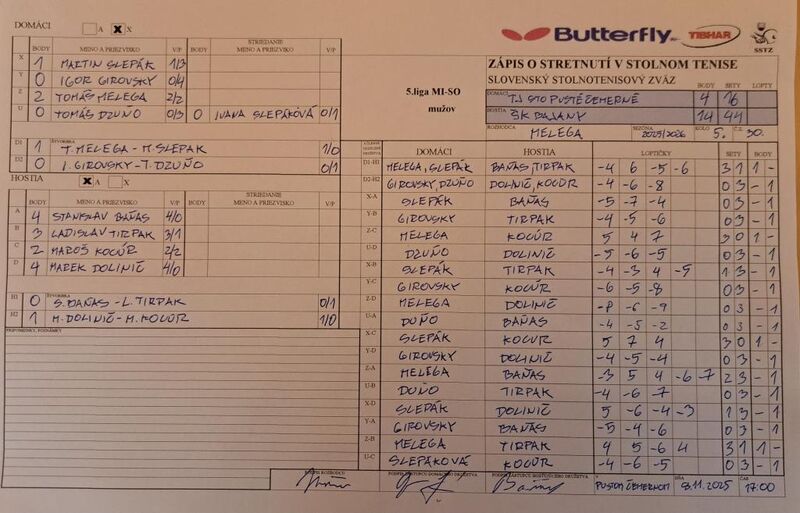 DOMÁCI A X X
BODY MENO A PRIEZVISKO V/P BODY STRIEDANIE MENO A PRIEZVISKO V/P
X 1 MARTIN SLEPÁK 1/3
Y 0 IGOR GIROVSKÝ 0/4
Z 2 TOMÁŠ MELEGA 2/2
U 0 TOMÁŠ DZUŇO 0/3 0 IVANA SLEPÁKOVÁ 0/1
D1 1 ŠTVORHRA T. MELEGA - M. SLEPÁK 1/0
D2 0 I. GIROVSKY - T. DZUŇO 0/1
HOSTIA X A X
BODY MENO A PRIEZVISKO V/P BODY STRIEDANIE MENO A PRIEZVISKO V/P
A 4 STANISLAV BAŇAS 4/0
B 3 LADISLAV TIRPAK 3/1
C 2 MAROŠ KOCÚR 2/2
D 4 MAREK DOLINIČ 4/0
H1 0 ŠTVORHRA S. BAŇAS - L. TIRPAK 0/1
H2 1 M. DOLINIČ - M. KOCÚR 1/0
PRIPOMIENKY, POZNÁMKY
Butterfly TIBHAR SSTZ
5.liga MI-SO
mužov
ZÁPIS O STRETNUTÍ V STOLNOM TENISE
SLOVENSKÝ STOLNOTENISOVÝ ZVÄZ
DOMÁCI TJ STO PUSTÉ ČEMERNÉ BODY 4 SETY 16 LOPTY
HOSTIA ŠK PAJANY 14 44
ROZHODCA MELEGA SEZÓNA 2025/2026 KOLO 5. Č.Z. 30.
DOMÁCI HOSTIA LOPTIČKY SETY BODY
D1-H1 MELEGA, SLEPÁK BAŇAS, TIRPAK -4 6 -5 -6 3 1 1 -
D2-H2 GIROVSKY, DZUŇO DOLINIČ, KOCÚR -4 -6 -8 0 3 - 1
X-A SLEPÁK BAŇAS -5 -7 -4 0 3 - 1
Y-B GIROVSKY TIRPAK -4 -5 -6 0 3 - 1
Z-C MELEGA KOCÚR 5 4 7 3 0 1 -
U-D DZUŇO DOLINIČ -5 -6 -5 0 3 - 1
X-B SLEPÁK TIRPAK -4 -3 4 -5 1 3 - 1
Y-C GIROVSKY KOCÚR -6 -5 -8 0 3 - 1
Z-D MELEGA DOLINIČ -8 -6 -9 0 3 - 1
U-A DUŇO BAŇAS -4 -5 -2 0 3 - 1
X-C SLEPÁK KOCUR 5 7 4 3 0 1 -
Y-D GIROVSKY DOLINIČ -4 -5 -4 0 3 - 1
Z-A MELEGA BAŇAS -3 5 4 -6 -7 2 3 - 1
U-B DUŇO TIRPAK -4 -6 -7 0 3 - 1
X-D SLEPÁK DOLINIČ 5 -6 -4 -3 1 3 - 1
Y-A GIROVSKY BAŇAS -5 -4 -6 0 3 - 1
Z-B MELEGA TIRPAK 4 5 -6 4 3 1 1 -
U-C SLEPÁKOVÁ KOCÚR -4 -6 -5 0 3 - 1
PODPIS ROZHODCU PODPIS ZÁSTUPCU DOMÁCEHO DRUŽSTVA PODPIS ZÁSTUPCU HOSŤUJÚCEHO DRUŽSTVA V PUSTOM ČEMERNOM DŇA 8.11.2025 ČAS 17:00